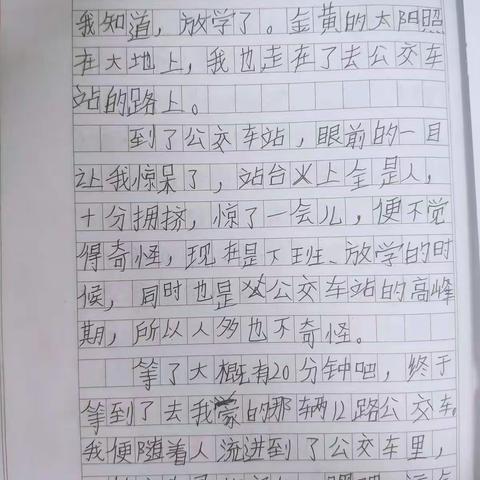 我知道，放学了。金黄的太阳照
在大地上，我也走在了去公交车
站的路上。
到了公交车站，眼前的一目
让我惊呆了，站台上全是人，
十分拥挤，惊了一会儿，便不觉
得奇怪，现在是下班、放学的时
候，同时也是公交车站的高峰
期，所以人多也不奇怪。
等了大概有20分钟吧，终于
等到了去我家的那辆12路公交车。
我便随着人流进到了公交车里，